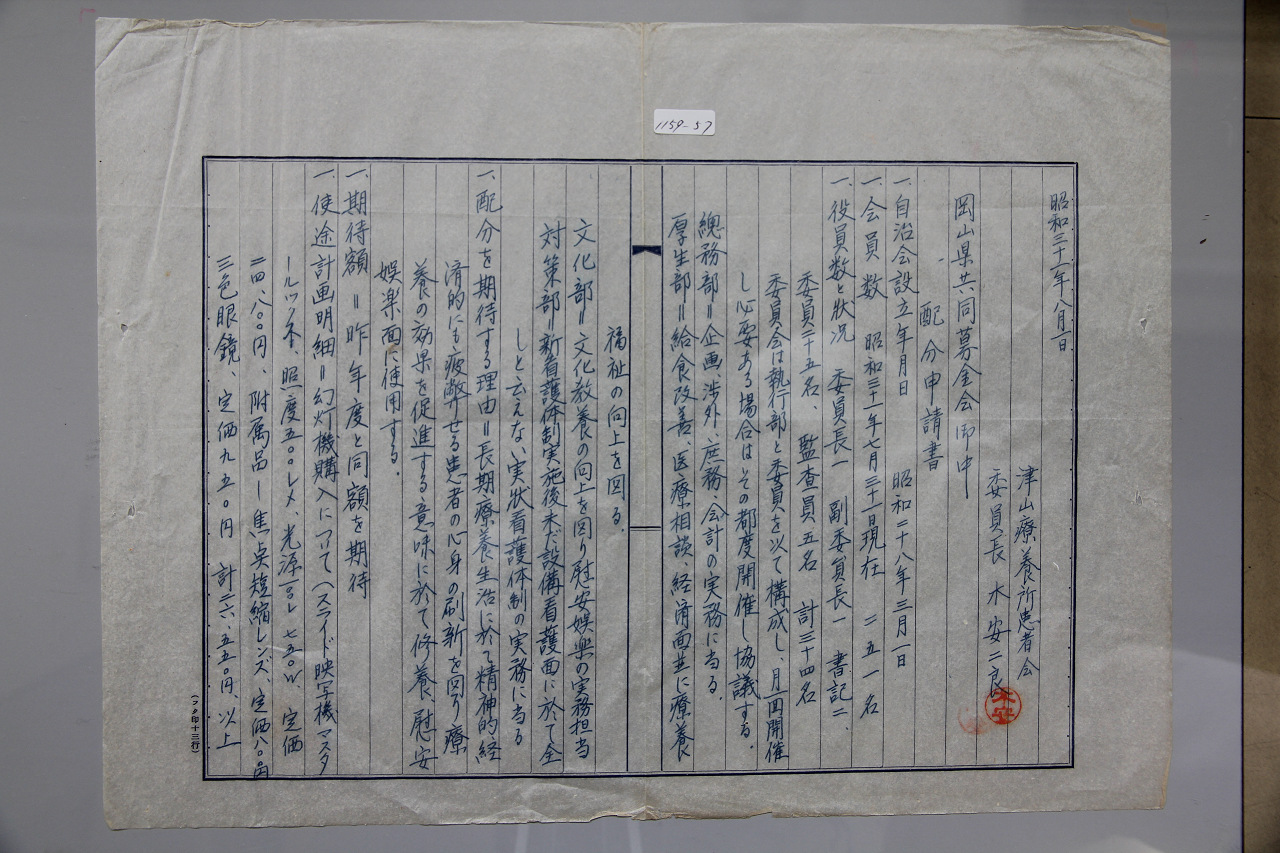 1159-57
昭和三十一年八月一日
津山療養所患者会
委員長 木安二良
岡山県共同募金会御中
配分申請書
一、自治会設立年月日 昭和二十八年三月一日
一、会員数 昭和三十一年七月三十一日現在 二五一名
一、役員数と状況 委員長一 副委員長一 書記二、
委員二十五名、監査員五名 計三十四名
委員会は執行部と委員を以て構成し、月一回開催
し必要ある場合はその都度開催し協議する。
総務部=企画、渉外、庶務、会計の実務に当る。
厚生部=給食改善、医療相談、経済面並に療養
福祉の向上を図る。
文化部=文化教養の向上を図り慰安娯楽の実務担当
対策部=新看護体制実施後未だ設備看護面に於て全
しと云えない実状看護体制の実務に当る
一、配分を期待する理由=長期療養生活に於て精神的経
済的にも疲弊せる患者の心身の刷新を図り療
養の効果を促進する意味に於て修養、慰安
娯楽面に使用する。
一、期待額=昨年度と同額を期待
一、使途計画明細=幻灯機購入について(スライド映写機マスタ
ールックス、照度五〇〇ルメ、光源一〇〇V 七五〇W、定価
二四、八〇〇円、附属品ー焦点短縮レンズ、定価八〇〇円
三色眼鏡、定価九五〇円 計二六、五五〇円、以上
(フタ印十三行)